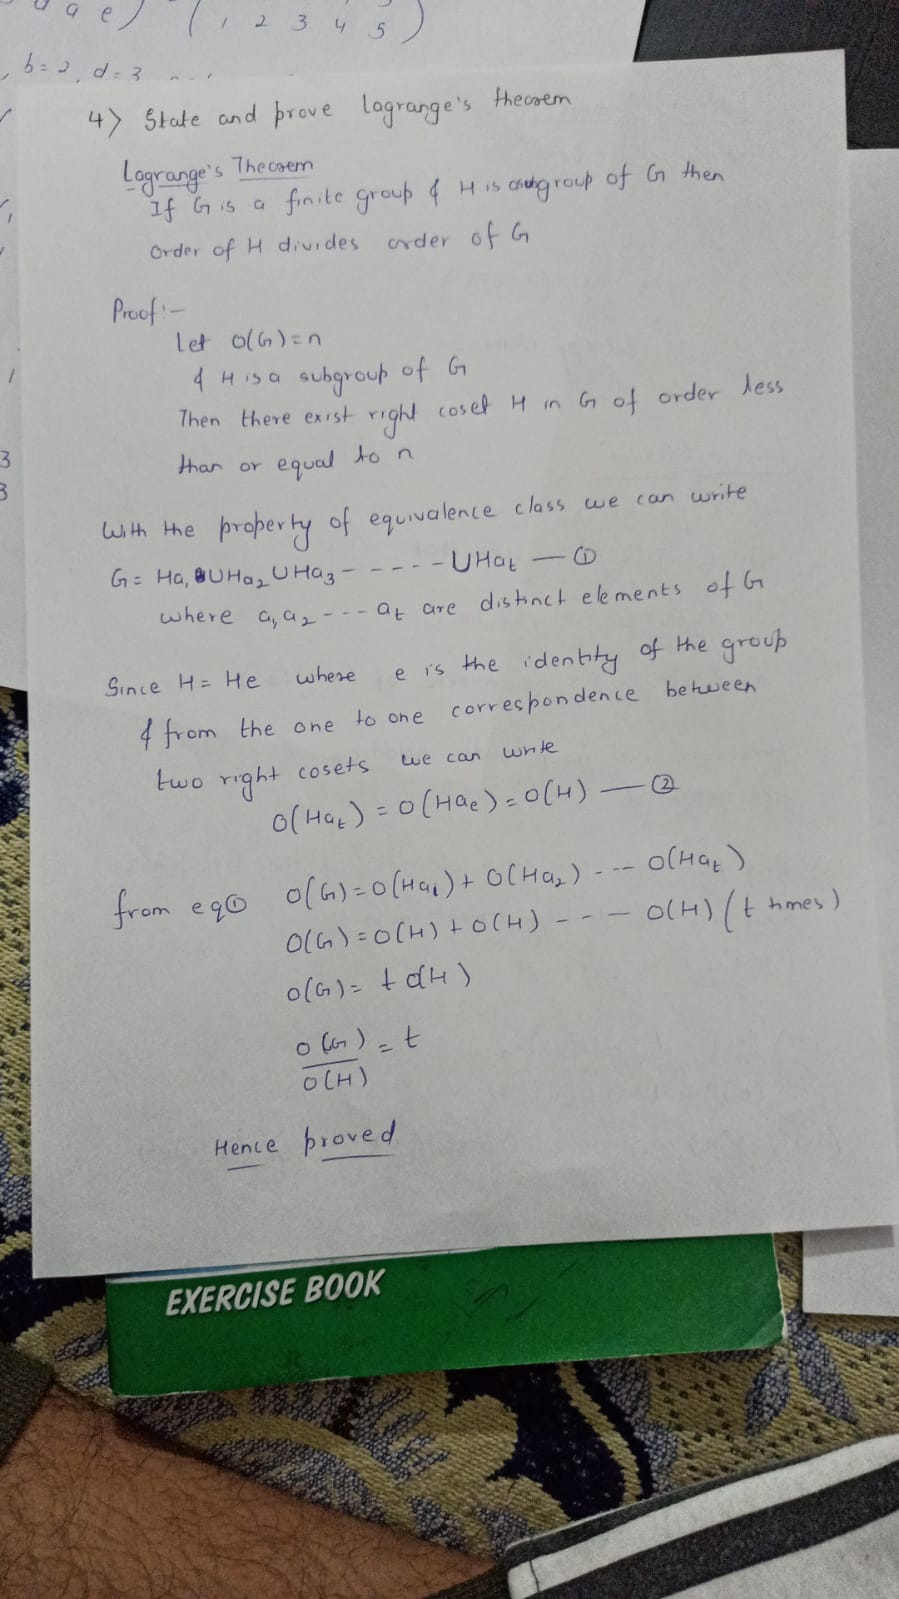 a e)
( 1 2 3 4 5 )
b=2, d=3
4> State and prove Lagrange's theorem
Lagrange's Theorem
If G is a finite group & H is a subgroup of G then
order of H divides order of G
Proof:-
Let O(G)=n
& H is a subgroup of G
Then there exist right coset H in G of order less
than or equal to n
With the property of equivalence class we can write
G = Ha₁ UHa₂ UHa₃ - - - - - UHat — ①
where a₁ a₂ - - - at are distinct elements of G
Since H = He where e is the identity of the group
& from the one to one correspondence between
two right cosets we can write
O(Hat) = O(Hae) = O(H) — ②
from eq① O(G) = O(Ha₁) + O(Ha₂) - -- O(Hat)
O(G) = O(H) + O(H) - - - O(H) (t times)
O(G) = t O(H)
O(G) = t
O(H)
Hence proved
EXERCISE BOOK